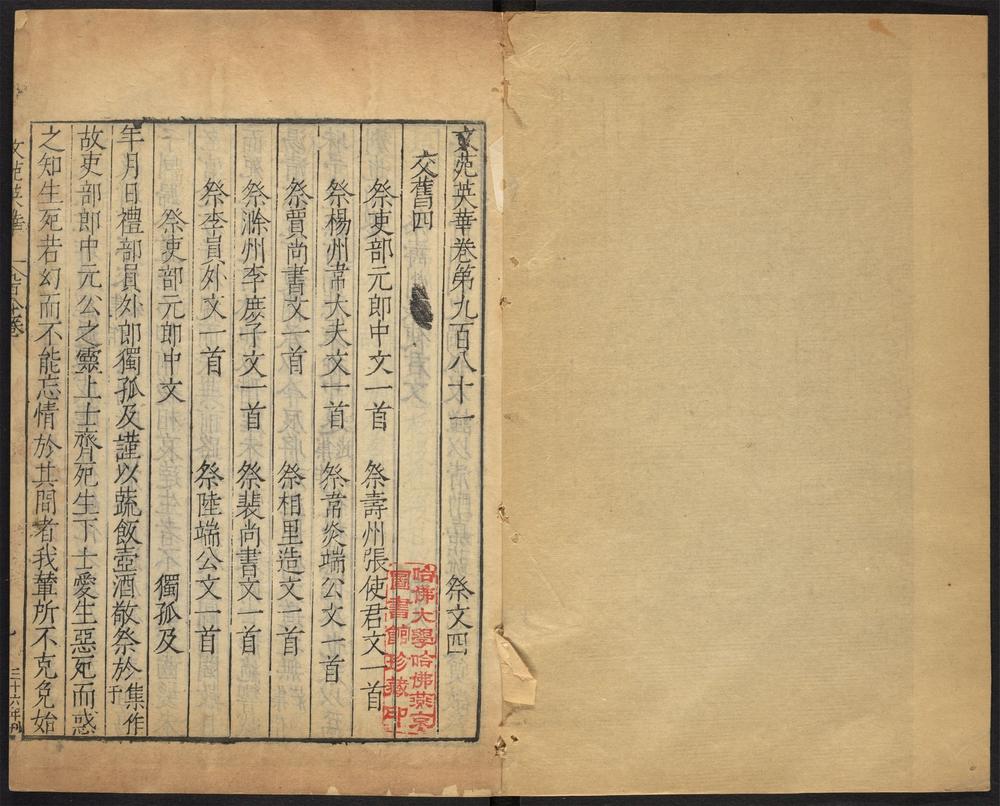 文苑英華卷第九百八十一　祭文四
交舊四
祭吏部元郎中文一首　祭壽州張使君文一首
祭楊州韋大夫文一首　祭常炎端公文一首
祭賈尚書文一首　祭相里造文一首
祭滁州李庶子文一首　祭裴尚書文一首
祭李員外文一首　祭陸端公文一首
祭吏部元郎中文　獨孤及
年月日禮部員外郎獨孤及謹以蔬飯壺酒敬祭於集作于
故吏部郎中元公之靈上士齊死生下士愛生惡死而惑
之知生死若幻而不能忘情於其間者我輩所不克免始
文苑英華
三十六年刊
哈佛大學哈佛燕京
圖書館珍藏印